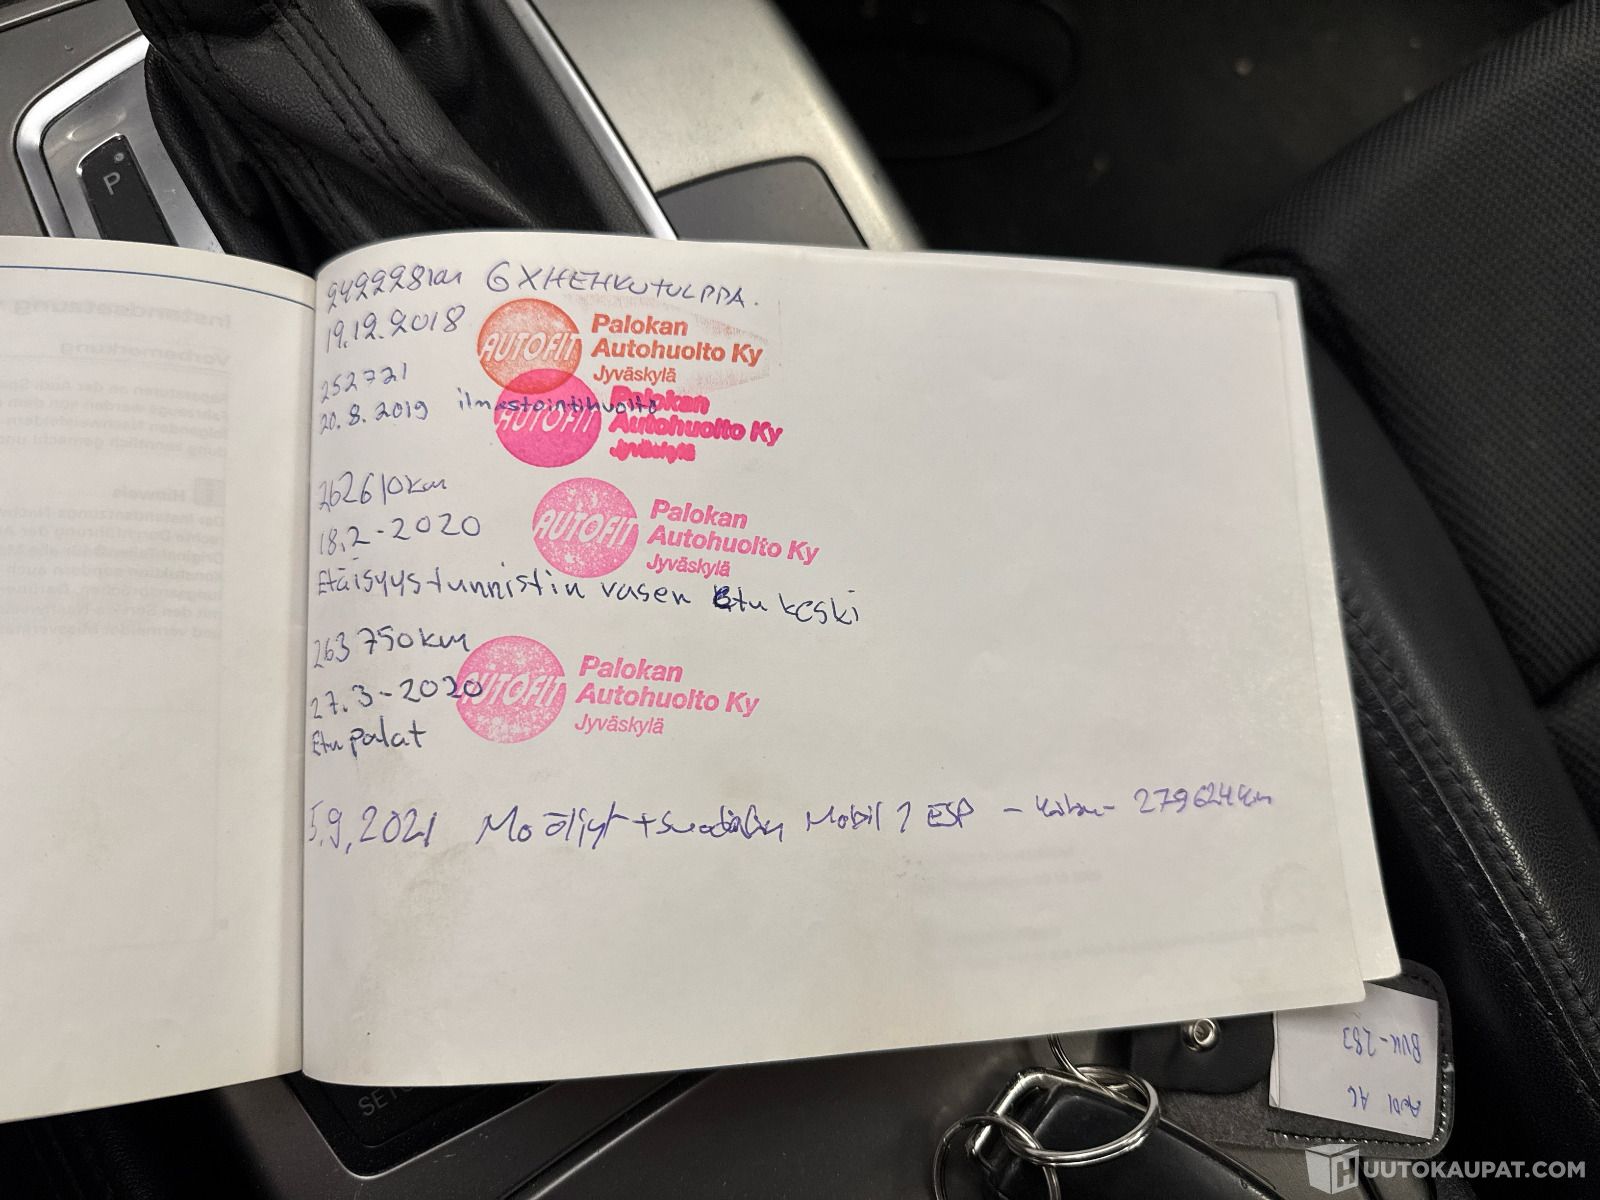 P
242228km 6 X HEHKUTULPPA.
19.12.2018
AUTOFIT
Palokan
Autohuolto Ky
Jyväskylä
252721
20.8.2019 ilmastointihuolto
AUTOFIT
Palokan
Autohuolto Ky
Jyväskylä
262610km
18.2-2020
AUTOFIT
Palokan
Autohuolto Ky
Jyväskylä
Etäisyystunnistin vasen Etu keski
263750km
27.3-2020
AUTOFIT
Palokan
Autohuolto Ky
Jyväskylä
Etu palat
5.9.2021 Mo öljyt + suodatin Mobil 1 ESP - 279624km
SET
AUDI A6
BVK-283
HUUTOKAUPAT.COM